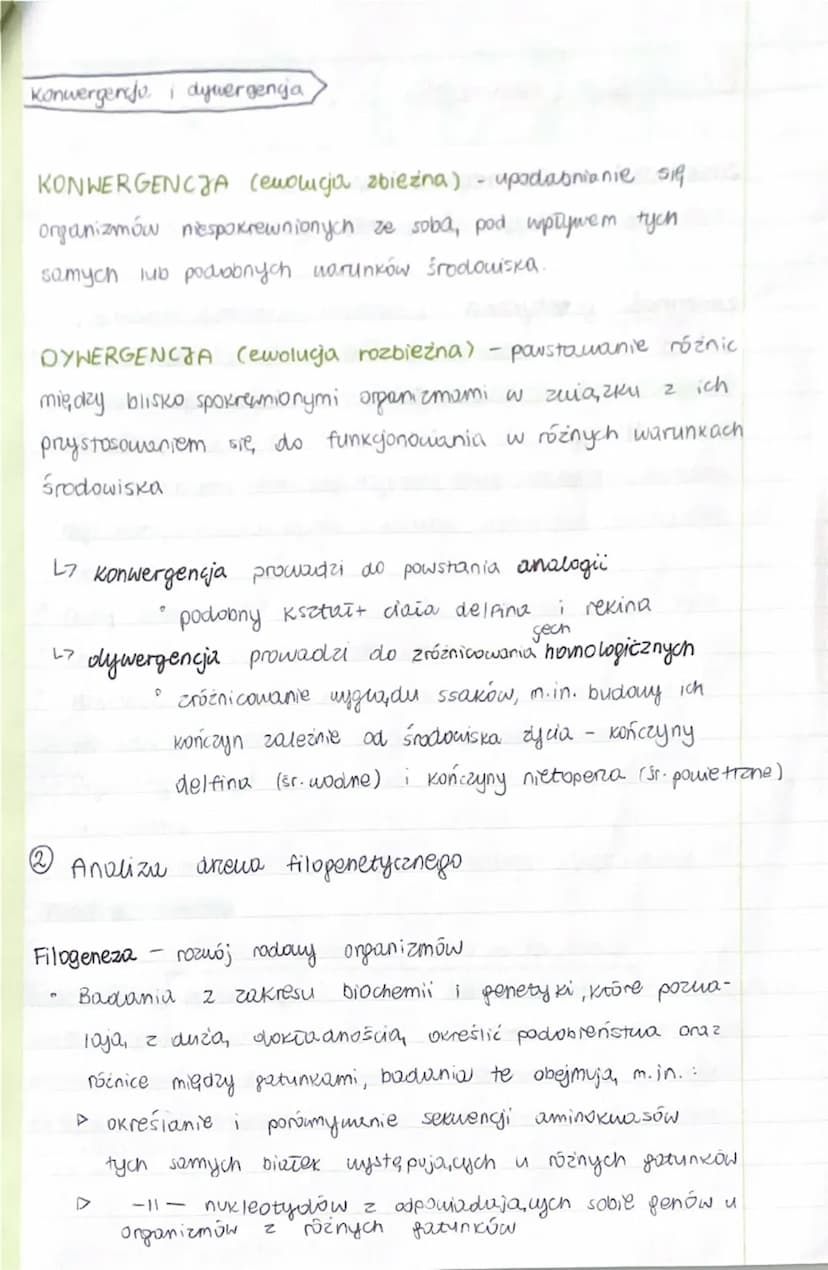 Konwergencja i dywergencja
KONWERGENCJA (ewolucja zbieżna) - upodabnianie się
organizmów niespokrewnionych ze sobą, pod wpływem tych
samych lub podobnych warunków środowiska.
DYWERGENCJA (ewolucja rozbieżna) - powstawanie różnic
między blisko spokrewnionymi organizmami w związku z ich
przystosowaniem się do funkcjonowania w różnych warunkach
środowiska
↳ konwergencja prowadzi do powstania analogii
° podobny kształt ciała delfina i rekina
cech
↳ dywergencja prowadzi do zróżnicowania homologicznych
° zróżnicowanie wyglądu ssaków, m.in. budowy ich
kończyn zależnie od środowiska życia - kończyny
delfina (śr. wodne) i kończyny nietoperza (śr. powietrzne)
② Analiza drzewa filogenetycznego
Filogeneza - rozwój rodowy organizmów
• Badania z zakresu biochemii i genetyki, które pozwa-
lają z dużą dokładnością określić podobieństwa oraz
różnice między gatunkami, badania te obejmują m.in. :
▷ określanie i porównywanie sekwencji aminokwasów
tych samych białek występujących u różnych gatunków
▷ -11- nukleotydów z odpowiadających sobie genów u
organizmów z różnych gatunków